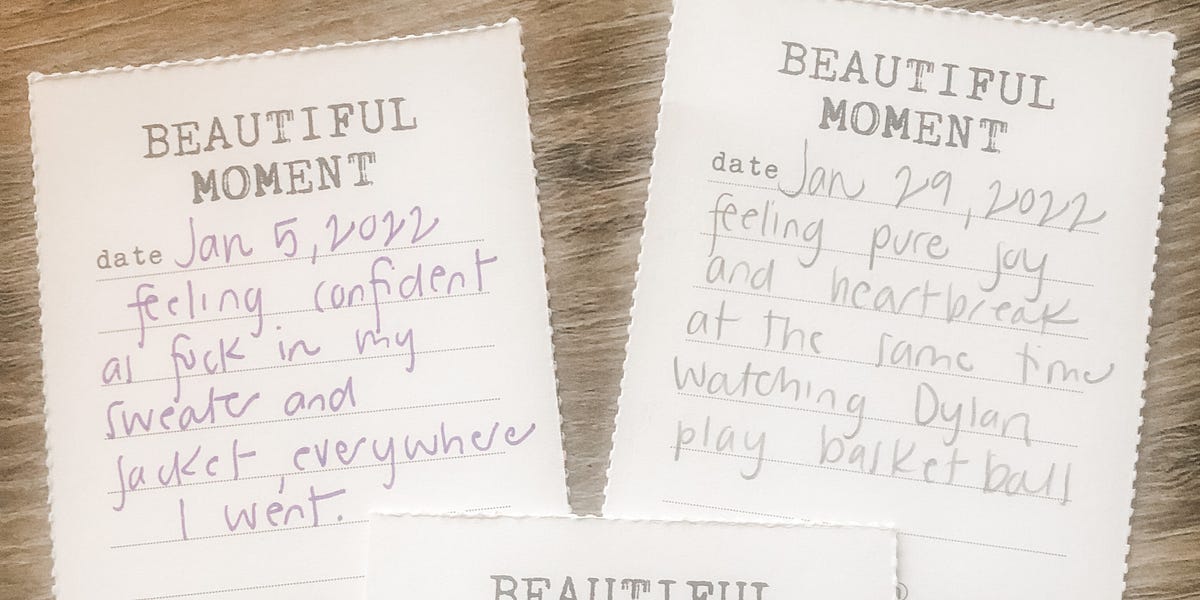 BEAUTIFUL
MOMENT
date Jan 5, 2022
feeling confident
as fuck in my
sweater and
jacket, everywhere
I went.
BEAUTIFUL
MOMENT
date Jan 29, 2022
feeling pure joy
and heartbreak
at the same time
watching Dylan
play basketball
BEAUTIFUL